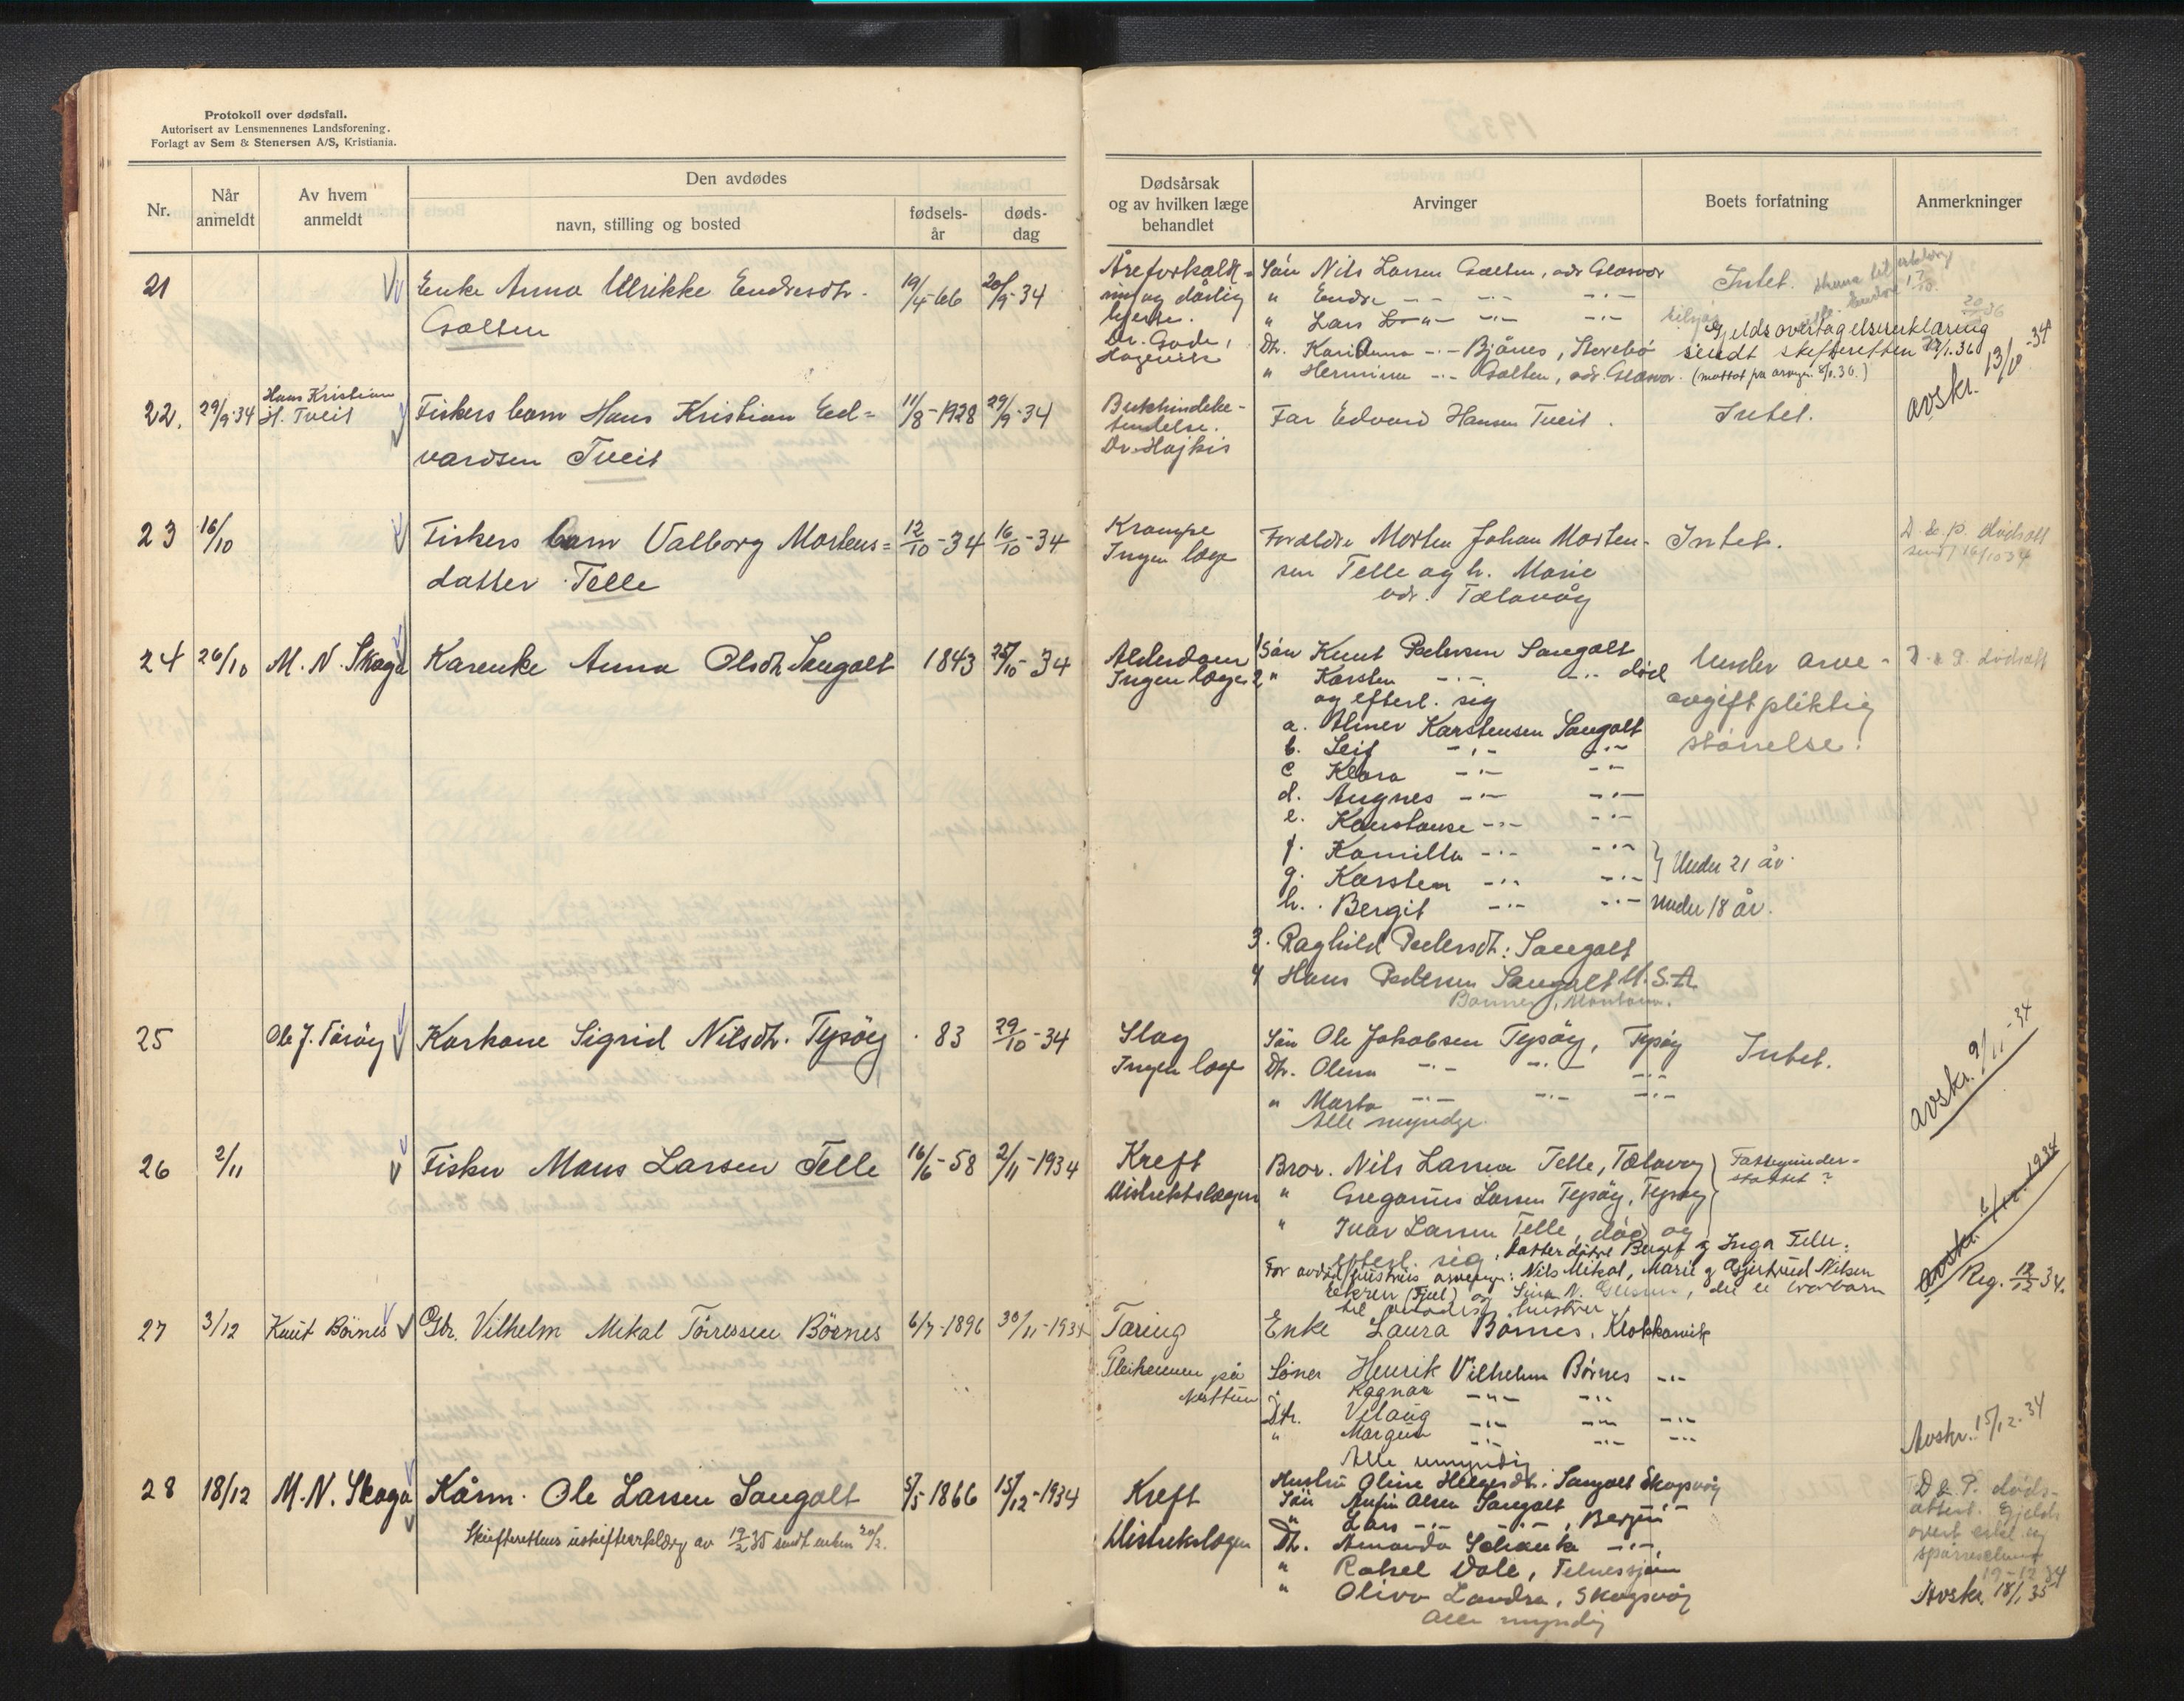 Protokoll over dødsfall.
Autorisert av Lensmennenes Landsforening.
Forlagt av Sem & Stenersen A/S, Kristiania.
Nr.
Når anmeldt
Av hvem anmeldt
Den avdødes
navn, stilling og bosted
fødsels-år
døds-dag
Dødsårsak og av hvilken læge behandlet
Arvinger
Boets forfatning
Anmerkninger
21 Enke Anna Ulrikke Endresdtr. 19/4-66 20/9-34
Golten
Åreforkalk-
ning og dårlig
hjerte.
Dr. Gade,
Hagevik
Sön Nils Larsen Golten, adr Glesvær
" Endre -"- -"- -"-
" Lars -"- -"- -"-
Dtr. Kari Anna -"- Bjånes, Storebö
" Hermina -"- Golten, adr. Glesvær.
Intet.
Gjeldsovertagelseserklæring
sendt skifteretten
avskr. 13/10-34
22. 29/9-34 Hans Kristian
H. Tveit
Fiskers barn Hans Kristian Ed=
vardsen Tveit
11/8-1928 29/9-34
Bukhindebe-
tendelse.
Far Edvard Hansen Tveit.
Intet.
23 16/10 Fiskers barn Valborg Mortens=
datter Telle
12/10-34 16/10-34
Krampe
Ingen læge
Foreldre Morten Johan Morten-
sen Telle og h. Marie
adr. Tælavåg
Intet.
D. s. p. dødsatt
sendt 16/10 34
24 26/10 M. N. Skaga Karenke Anna Olsdtr. Sangolt 1843 25/10-34
Alderdom
Ingen læge
1 Sön Knut Pedersen Sangolt
2 " Karsten -"- -"- död
og efterl. sig
a. Almer Karstensen Sangolt
b. Leif -"- -"-
c Klara -"- -"-
d. Augnes -"- -"-
e. Konstanse -"- -"-
f. Kamilla -"- -"-
g. Karsten -"- -"- } Under 21 år.
h. Bergit -"- -"- Under 18 år.
3. Raghild Pedersdtr. Sangolt
4 Hans Pedersen Sangolt U.S.A.
Bonner, Montana.
Under arve-
avgiftpliktig
størrelse.
D. s. P. dødsatt
25 Ole J. Tösöy Karkone Sigrid Nilsdtr. Tysöy 83 29/10-34
Slag
Ingen læge
Sön Ole Jakobsen Tysöy, Tysöy
Dtr. Olena -"- -"- -"-
" Marta -"- -"- -"-
Alle myndge.
Intet.
avskr. 9/11-34
26 2/11 Fisker Mons Larsen Telle 16/6-58 2/11-1934
Kreft
Distriktslægen
Bror. Nils Larsen Telle, Tælavåg
" Gregorius Larsen Tysöy, Tysöy
" Ivar Larsen Telle, död og
efterl. sig, datter Berget g Inga Telle.
For avdöd hustrus arvinger: Nils Mikal, Marie g Gjertrud Nilsen
Fattigunder-
støttet?
Reg. 12/12 34.
27 3/12 Knut Börnes Gbr. Vilhelm Mikal Törressen Börnes 6/7-1896 30/11-1934
Tæring
Pleihemmet på
Nesttun
Enke Laura Börnes, Klokkarvik
Söner Henrik Vilhelm Börnes -"-
Ragnar -"- -"-
Dtr. Velaug -"- -"- -"-
" Margun -"- -"- -"-
Alle umyndig
Avskr. 15/12-34
28 18/12 M. N. Skaga Kårm. Ole Larsen Sangolt 5/5-1866 15/12-1934
Skifterettens uskifteerklærg av 19/2 35 sendt enken 20/2.
Kreft
Distriktslægen
Hustru Oline Helgesdtr. Sangolt Skogsvåg
Sön Anfin Olsen Sangolt -"-
" Lars -"- -"-, Bergen
Dtr. Amanda Schanke -"-
" Rakel Dale, Telnessjöen
" Oliva Landra, Skogsvåg
Alle myndig
D s. P. døds-
attest. Gjelds
overt erkl. og
19-12 34
Avskr. 18/1 35